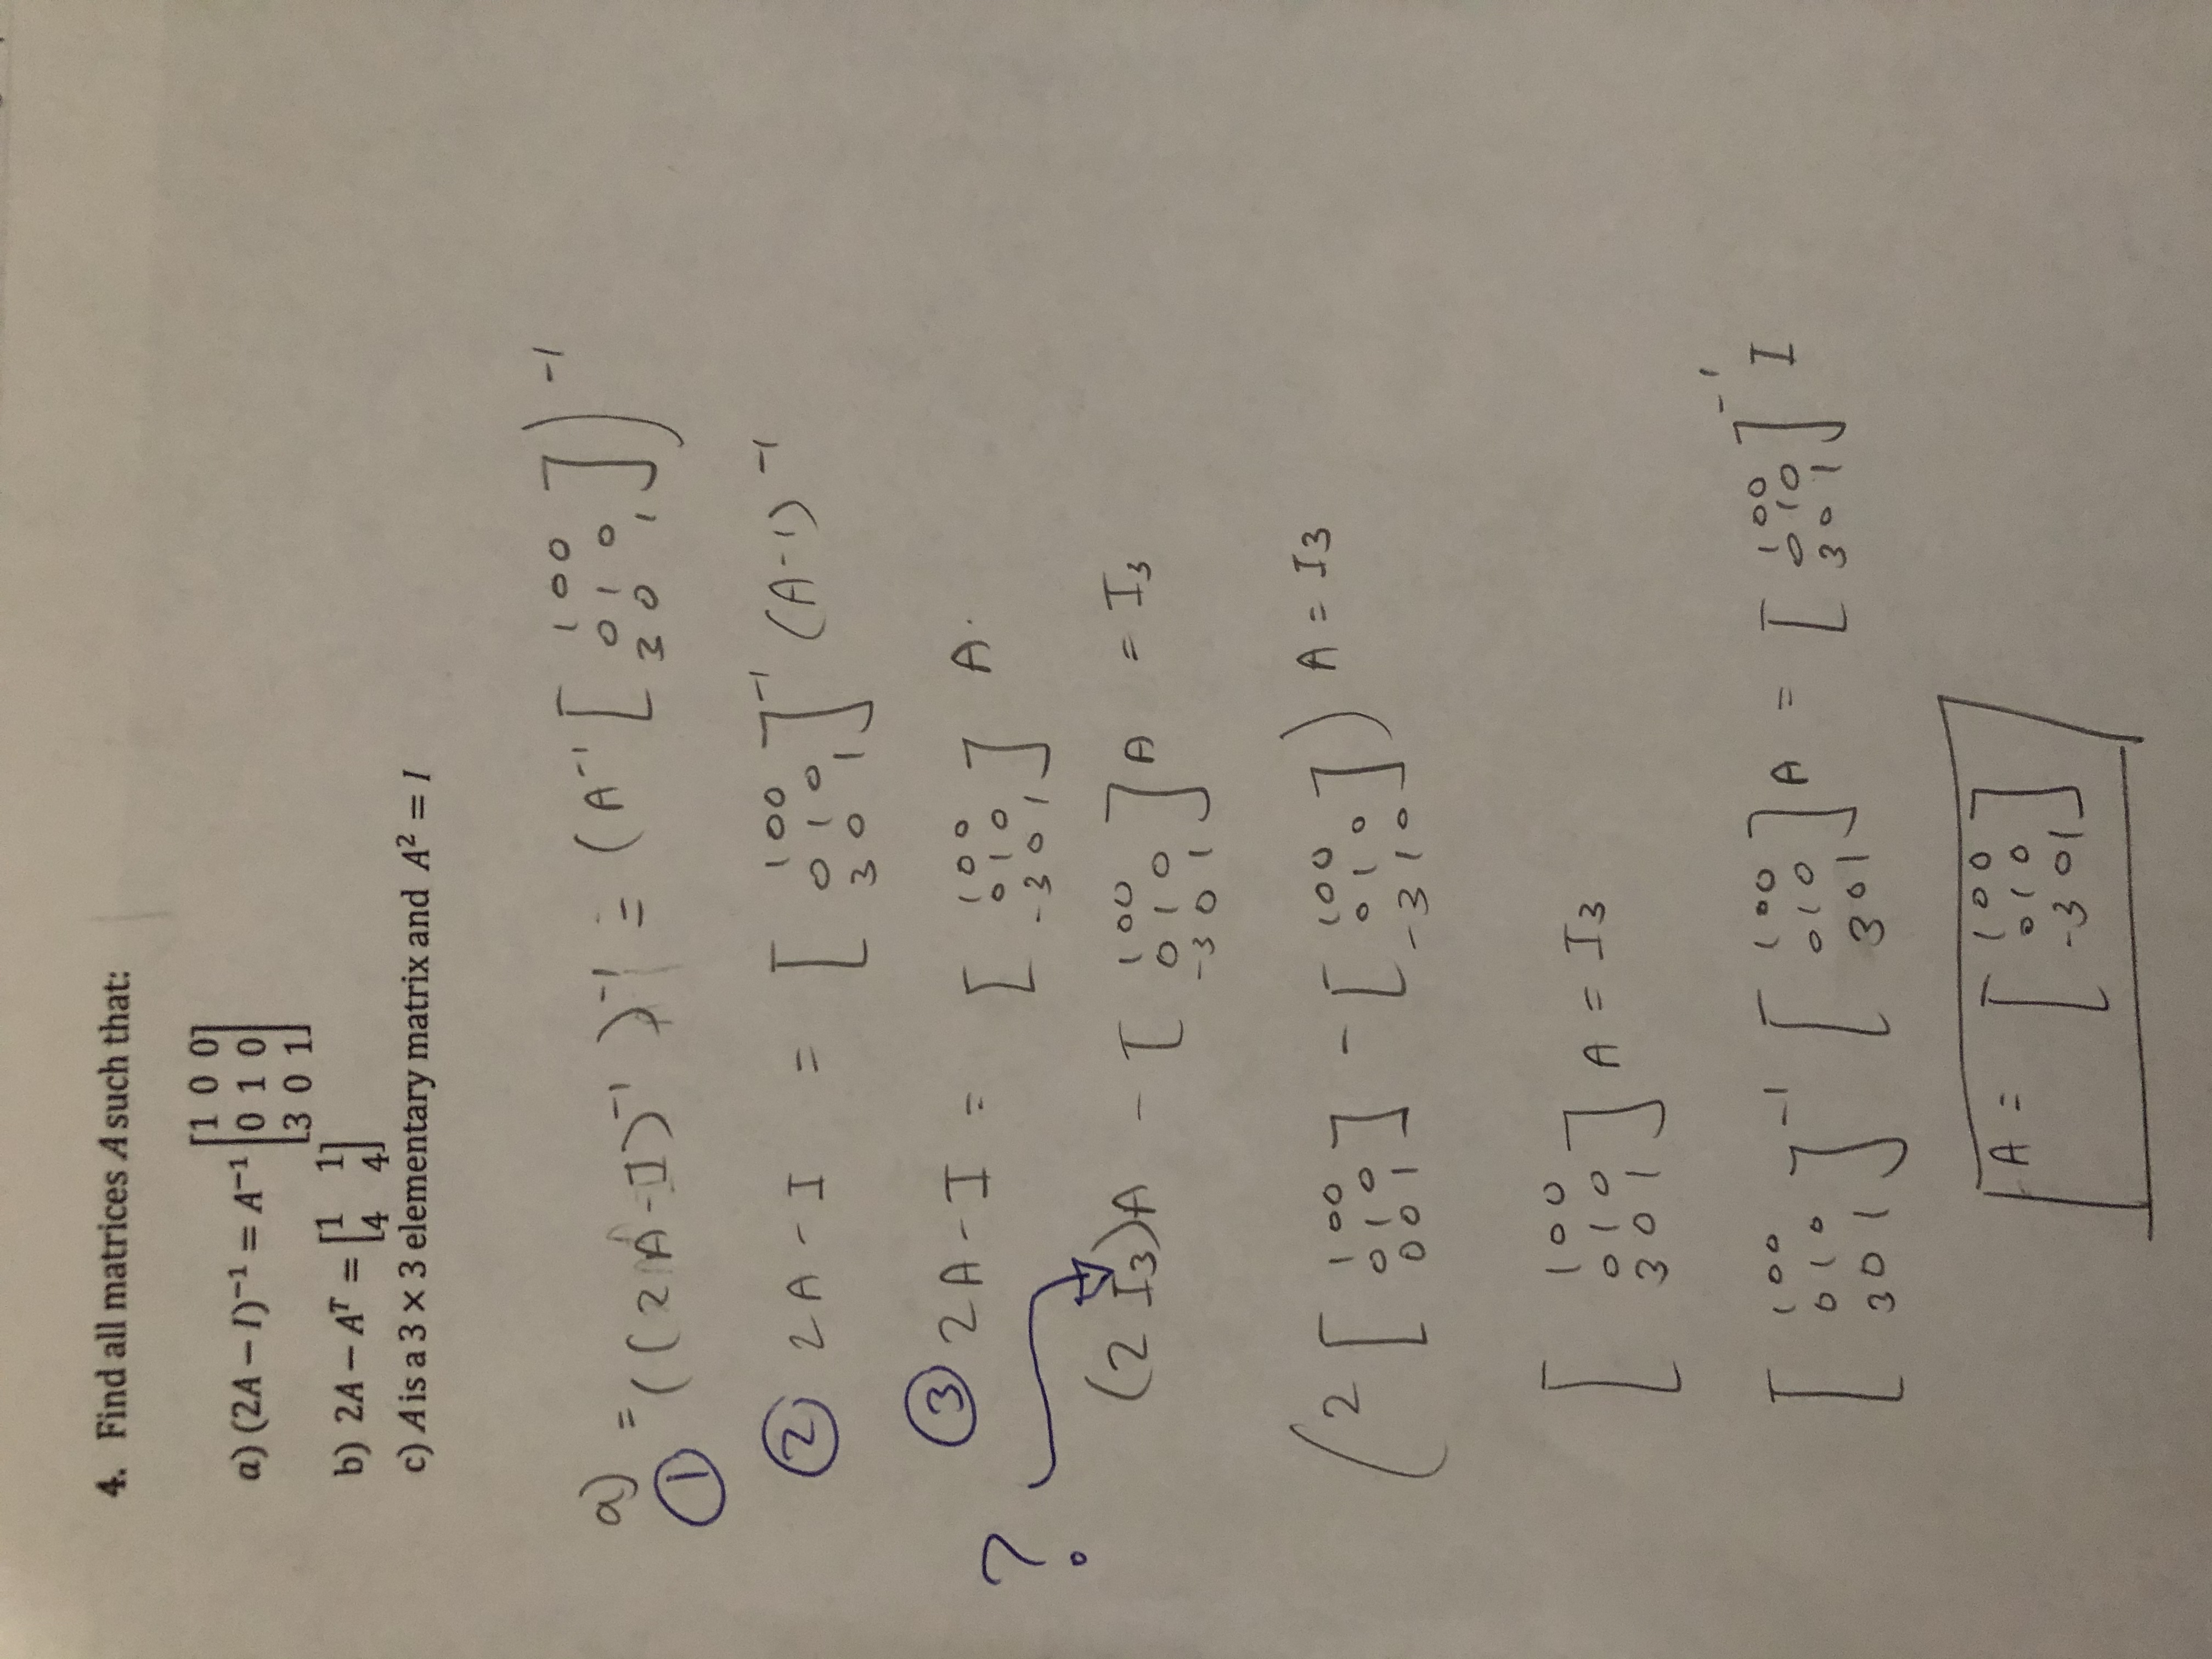 4. Find all matrices A such that:
a) (2A − I)⁻¹ = A⁻¹ [1 0 0
0 1 0
3 0 1]
b) 2A − Aᵀ = [1 1
4 4]
c) A is a 3 × 3 elementary matrix and A² = I
a) = ((2A-I)⁻¹)⁻¹ = (A⁻¹ [1 0 0
0 1 0
3 0 1])⁻¹
①
② 2A - I = [1 0 0
0 1 0
3 0 1]⁻¹ (A-1)⁻¹
③ 2A - I = [1 0 0
0 1 0
-3 0 1] A.
? (2 I₃)A - [1 0 0
0 1 0
-3 0 1] A = I₃
(2 [1 0 0
0 1 0
0 0 1] - [1 0 0
0 1 0
-3 1 0]) A = I₃
[1 0 0
0 1 0
3 0 1] A = I₃
[1 0 0
0 1 0
3 0 1]⁻¹ [1 0 0
0 1 0
3 0 1] A = [1 0 0
0 1 0
3 0 1]⁻¹ I
A = [1 0 0
0 1 0
-3 0 1]